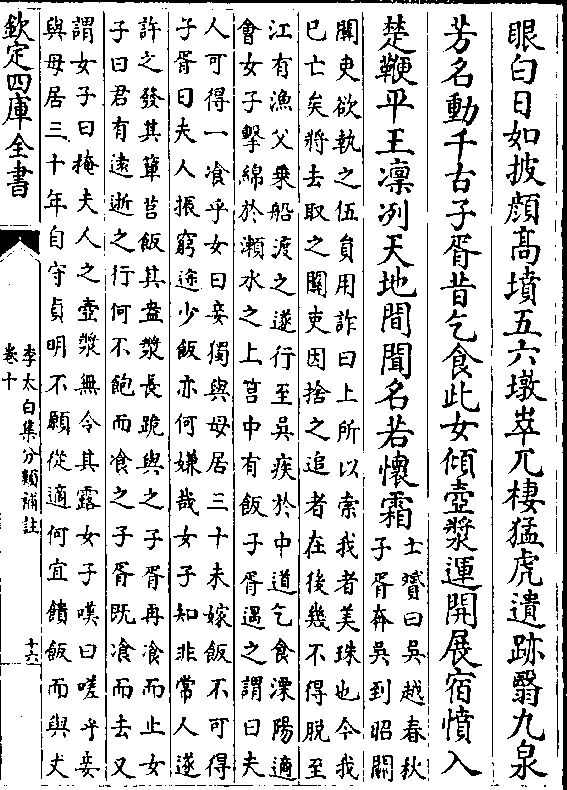 眼白日如披顔髙墳五六墩崒兀棲猛虎遺跡翳九泉
芳名動千古子胥昔乞食此女傾壺漿運開展宿憤入
楚鞭平王凛冽天地間聞名若懷霜
士贇曰吳越春秋
子胥奔吳到昭關
關吏欲執之伍員用詐曰上所以索我者美珠也今我
已亡矣將去取之關吏因捨之追者在後幾不得脫至
江有漁父乗船渡之遂行至吳疾於中道乞食溧陽適
會女子擊綿於瀨水之上筥中有飯子胥遇之謂曰夫
人可得一飡乎女曰妾獨與母居三十未嫁飯不可得
子胥曰夫人振窮途少飯亦何嫌哉女子知非常人遂
許之發其簞筥飯其盎漿長跪與之子胥再飡而止女
子曰君有逺逝之行何不飽而飡之子胥既飡而去又
謂女子曰掩夫人之壺漿無令其露女子嘆曰嗟乎妾
與母居三十年自守貞明不願從適何宜饋飯而與丈
欽定四庫全書
李太白集分類補註
卷十
十六